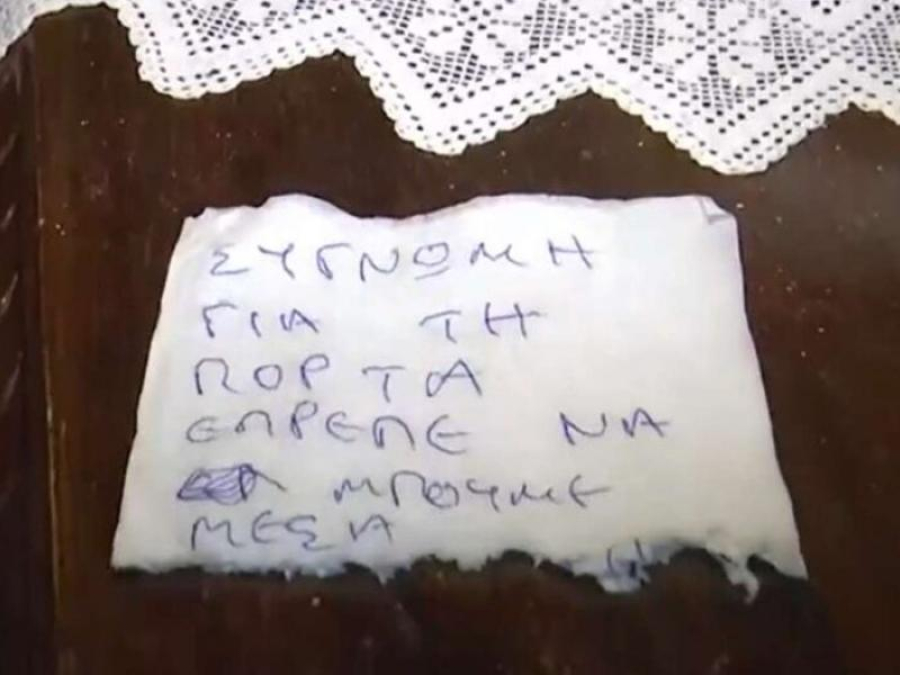 ΣΥΓΝΩΜΗ
ΓΙΑ ΤΗ
ΠΟΡΤΑ
ΕΠΡΕΠΕ ΝΑ
ΜΠΟΥΜΕ
ΜΕΣΑ